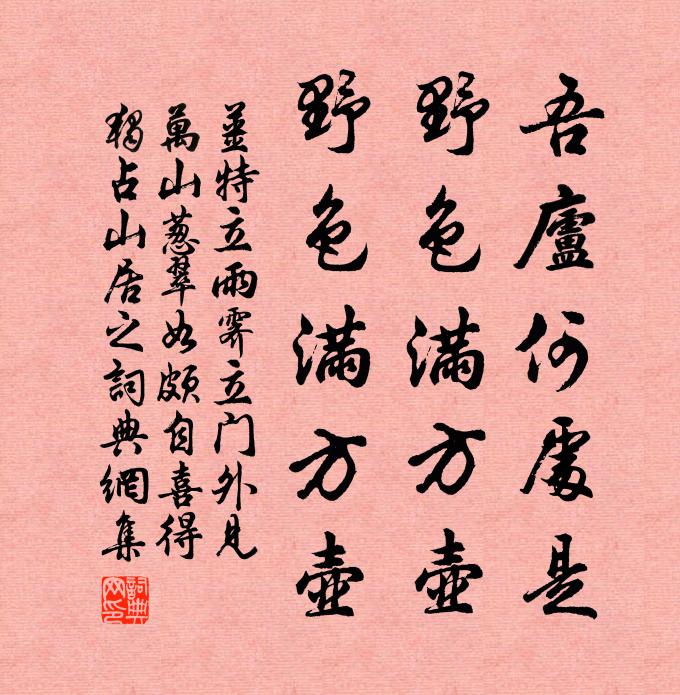 吾廬何處是
野色滿方壺
野色滿方壺
姜特立雨霽立门外見
萬山蔥翠如靧頗自喜得
獨占山居之詞典網集
詞典網印